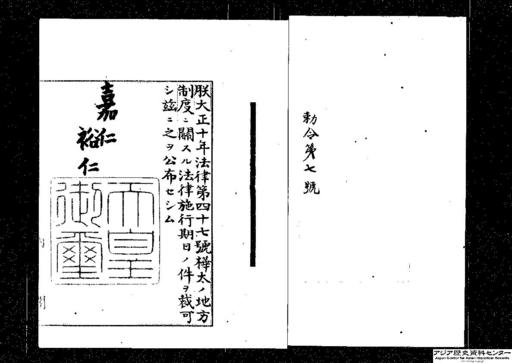 勅令第七號
朕大正十年法律第四十七號樺太ノ地方
制度ニ關スル法律施行期日ノ件ヲ裁可
シ玆ニ之ヲ公布セシム
嘉仁
裕仁
天皇
御璽
アジア歴史資料センター
Japan Center for Asian Historical Records